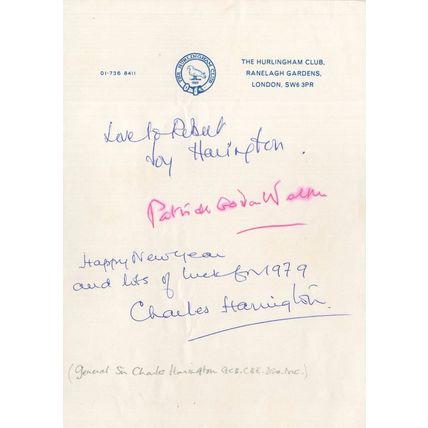 THE HURLINGHAM CLUB
01-736 8411
THE HURLINGHAM CLUB,
RANELAGH GARDENS,
LONDON, SW6 3PR
Love to Robert
Joy Harington.
Patrick Gordon Walker
Happy New Year
and lots of luck for 1979
Charles Harington.
(General Sir Charles Harington GCB. CBE. DSO. MC.)